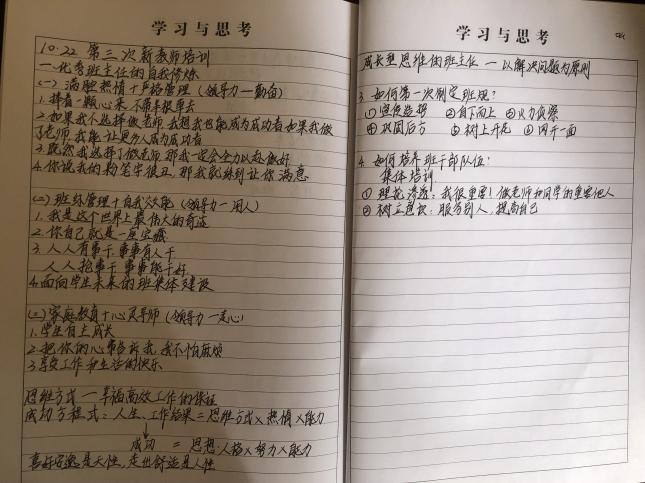 学习与思考
10.22 第三次新教师培训
一.优秀班主任的自我修炼
(一) 满腔热情+严格管理 (领导力—勤奋)
1.捧着一颗心来 不带半根草去
2.如果我不选择做老师,我想我也能成为成功者 如果我做
了老师,我能让更多人成为成功者
3.既然我选择了做老师,那我一定会全力以赴做好
4.你说我的粉笔字很丑,那我就练到让你满意
(二) 班级管理+自我效能 (领导力—用人)
1.我是这个世界上最伟大的奇迹
2.你自己就是一座宝藏
3.人人有事干 事事有人干
人人抢事干 事事能干好
4.面向学生未来的班集体建设
(三) 家庭教育+心灵导师 (领导力—走心)
1.学生自主成长
2.把你的心事告诉我,我不怕麻烦
3.享受工作和生活的快乐
思维方式—幸福高效工作的保证
成功方程式:人生、工作结果=思维方式×热情×能力
成功 = 思想、人格×努力×能力
喜好安逸是天性,走出舒适是人性
学习与思考
成长型思维的班主任 —以解决问题为原则
3.如何第一次制定班规?
①宣传造势 ②自下而上 ③火力侦察
④巩固后方 ⑤树上开花 ⑥网开一面
4.如何培养班干部队伍?
集体培训
①理念渗透:我很重要!做老师和同学的重要他人
②树立意识:服务别人,提高自己